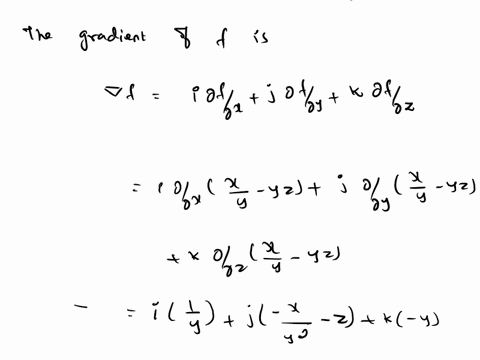 The gradient of f is
∇f = i ∂f/∂x + j ∂f/∂y + k ∂f/∂z
= i ∂/∂x (x/y - yz) + j ∂/∂y (x/y - yz)
+ k ∂/∂z (x/y - yz)
= i (1/y) + j (-x/y² - z) + k (-y)